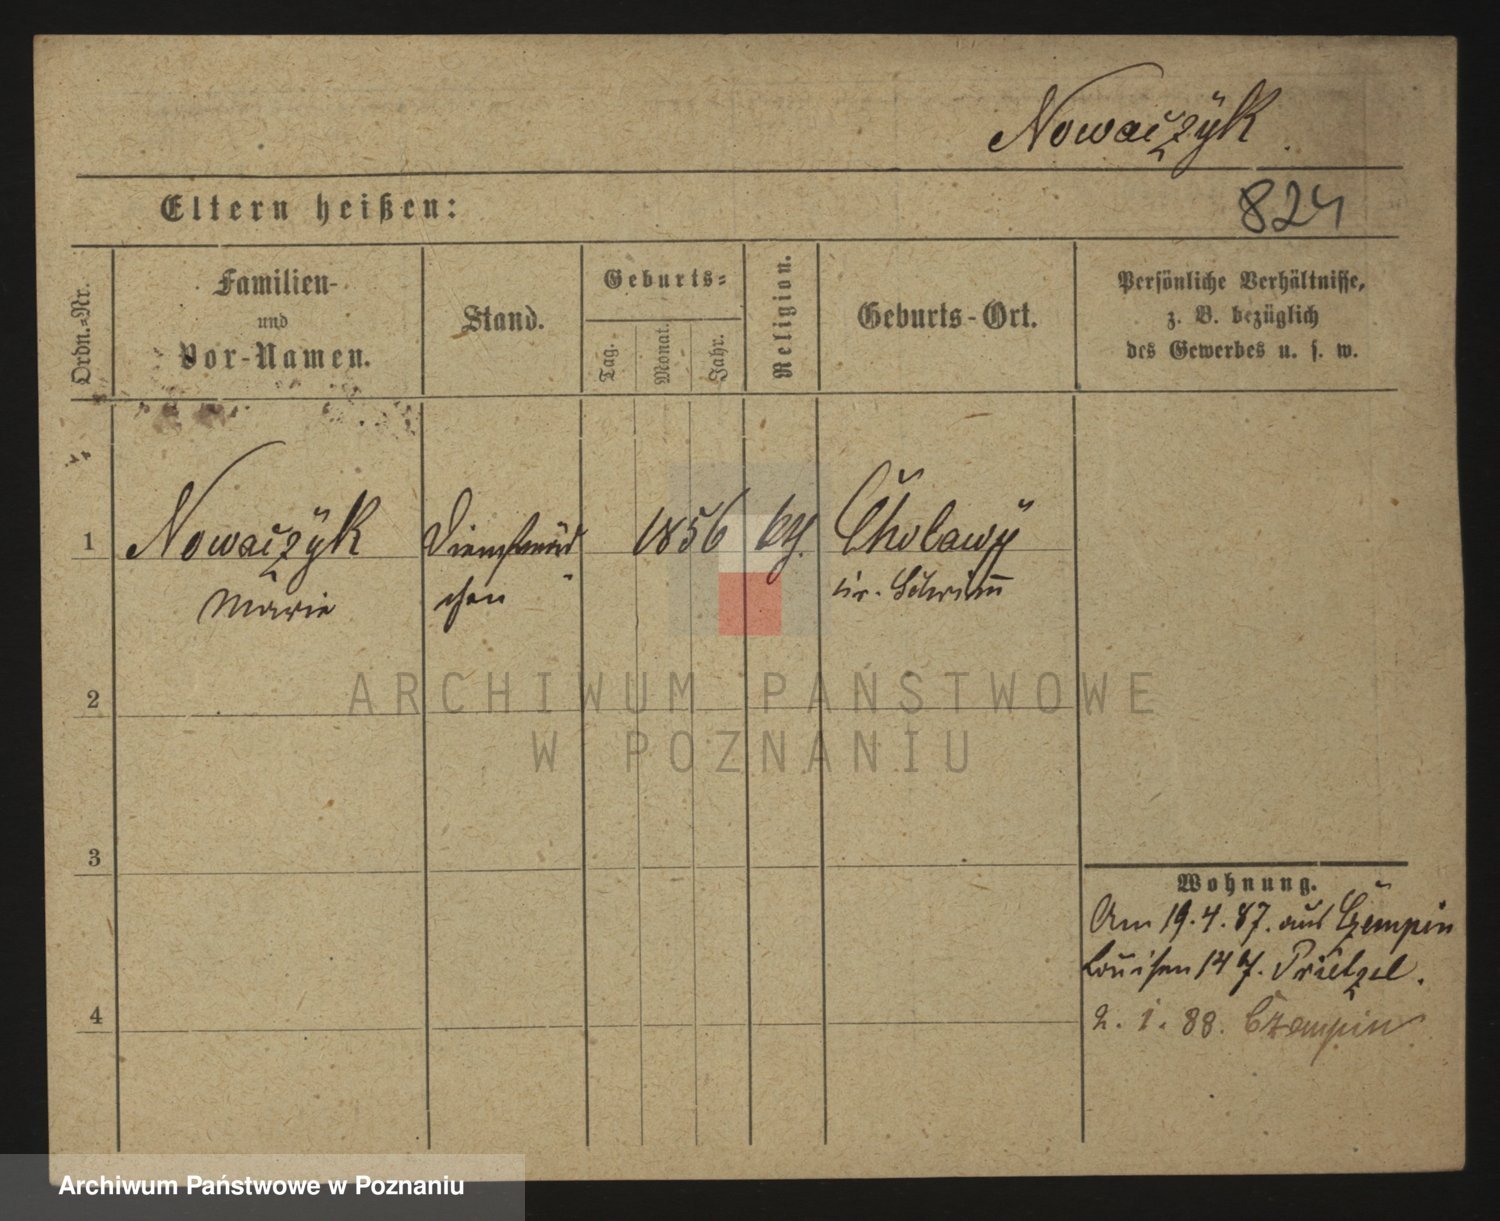 Nowaczÿk
Eltern heißen:
824
Ordn.-Nr.
Familien-
und
Vor-Namen.
Stand.
Geburts-
Tag.
Monat.
Jahr.
Religion.
Geburts-Ort.
Persönliche Verhältnisse,
z. B. bezüglich
des Gewerbes u. s. w.
1
Nowaczÿk
Marie
Dienstmäd
chen
1856
Kr. Schrimm
2
ARCHIWUM PAŃSTWOWE
W POZNANIU
3
Wohnung.
Am 19.4.87. aus Czempin
Louisen 14 Prietzel.
4
2. 1. 88. Czempin
Archiwum Państwowe w Poznaniu